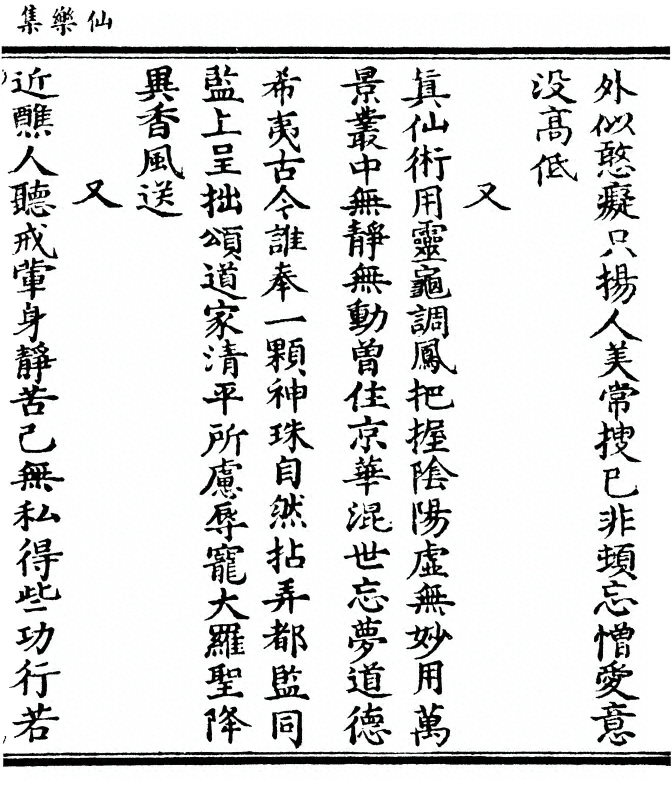 仙樂集
外似憨癡只揚人美常搜己非頓忘憎愛意
没高低
又
眞仙術用靈龜調鳳把握陰陽虛無妙用萬
景叢中無靜無動曾住京華混世忘夢道德
希夷古今誰奉一顆神珠自然拈弄都監同
監上呈拙頌道家清平所慮辱寵大羅聖降
異香風送
又
近醮人聽戒葷身靜苦己無私得些功行若